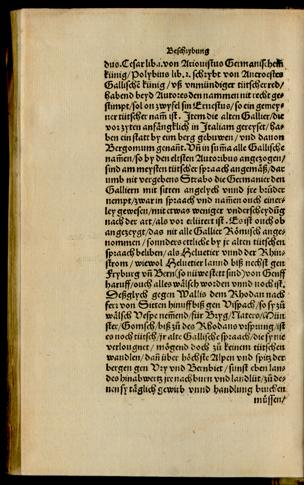 Beschrybung
dus. Cesar lib.1. von Ariouistus Germanisch em̄
künig / Polybius lib. 2. schrybt von Aneroestes
Gallischē künig / vß vnmündiger tütscher red /
habend beyd Autores den nammen nit recht ge-
stimpt / sol on zwyfel sin Ernestus / so ein gemey-
ner tütscher nam̄ ist. Item die alten Gallier / die
vor zyten anfängklich in Italiam gereyset / ha-
ben ein statt by ein berg gebuwen / vnd dauon
Bergomum genant. Vn̄ in sum̄a alle Gallische
namē / so by den eltisten Autoribus angezogen /
sind am meysten tütscher spraach angemäß / dar
umb nit vergebens Strabo die Germanier den
Galliern mit sitten angelych vnnd jre brüder
nempt / zwar in spraach vnd namen ouch einer-
ley gewesen / mit etwas weniger vnderscheydūg
nach der art / als vor erlütert ist. Es ist ouch ob
angezeygt / das nit alle Gallier Römisch ange-
nommen / sonnders ettliche by jr alten tütschen
spraach beliben / als Heluetier vnnd der Rhin-
strom / wiewol Heluetier lannd biß nechst gen
Fryburg vn̄ Bern (so nüwe stett sind) von Genff
haruff / ouch alles wälsch worden vnnd noch ist.
Deßglych gegen Wallis dem Rhodan nach
ferr von Sitten hinuff biß gen Vispach / so sy zů
wälsch Vespe nemend / für Bryg / Naters / Mün
ster / Gomsch / biß zů des Rhodans vrsprung / ist
es noch tütsch / jr alte Gallische spraach / die sy nie
verlougnet / mögend doch zů keinem tütschen
wandlen / dan̄ über höchste Alpen vnd spitz der
bergen gen Vry vnd Bernbiet / sunst eben lan-
des hinabwertz jre nachburn vnd landlüt / zů de-
nen sy täglich gewirb vnnd handlung bruchen
müssen /